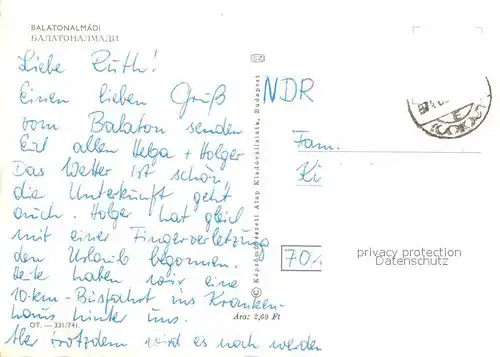 BALATONALMÁDI
БАЛАТОНАЛМАДИ
Liebe Ruth!
Einen lieben Gruß
vom Balaton senden
Euch allen Helga + Holger
Das Wetter ist schön
die Unterkunft geht
auch. Holger hat gleich
mit einer Fingerverletzung
den Urlaub begonnen.
Heute haben wir eine
10-km-Busfahrt ins Kranken-
haus hinter uns.
Aber trotzdem wird es noch werden
OT. — 331/741.
Ára: 2,60 Ft
© Képzőművészeti Alap Kiadóvállalata, Budapest
NDR
Fam.
Ki
701
privacy protection
Datenschutz